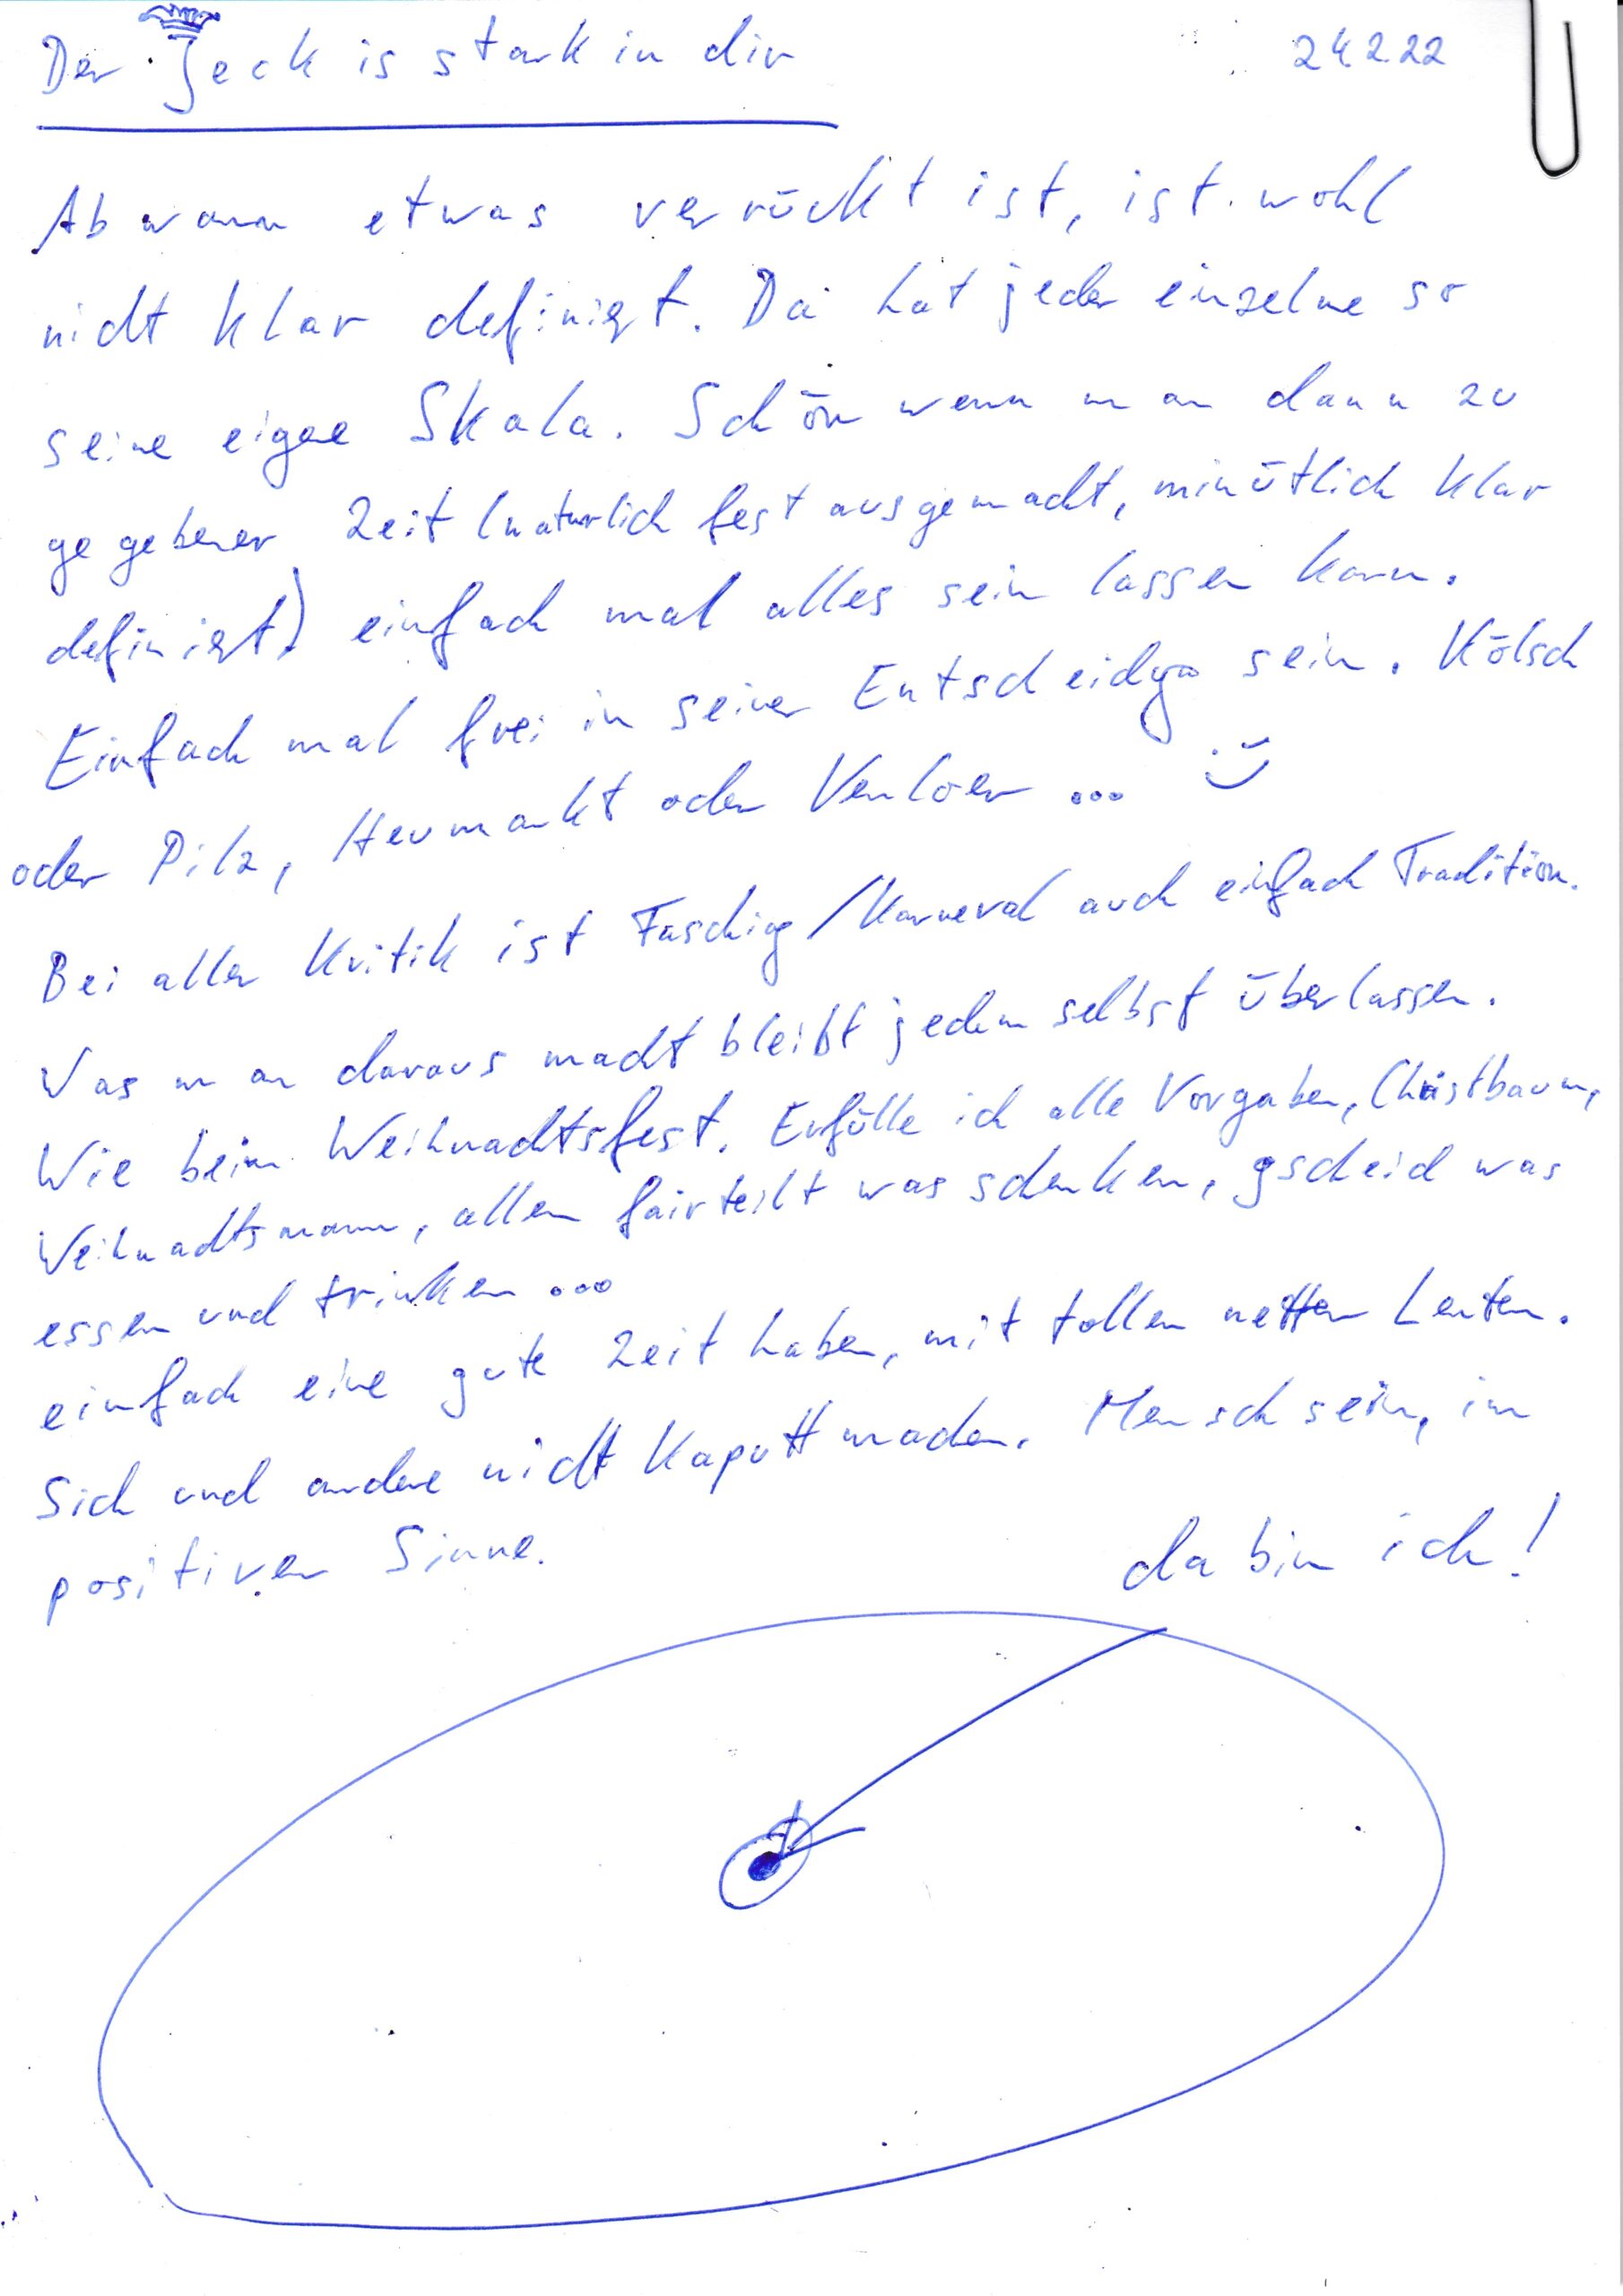 Der Jeck is stark in dir
24.2.22
Ab wann etwas verrückt ist, ist wohl
nicht klar definiert. Da hat jeder einzelne so
seine eigene Skala. Schön wenn man dann zu
gegebener Zeit (natürlich fest ausgemacht, minütlich klar
definiert) einfach mal alles sein lassen kann.
Einfach mal frei in seiner Entscheidung sein. Kölsch
oder Pilz, Heumarkt oder Venloer ... :)
Bei aller Kritik ist Fasching/Karneval auch einfach Tradition.
Was man daraus macht bleibt jedem selbst überlassen.
Wie beim Weihnachtsfest. Erfülle ich alle Vorgaben, Christbaum,
Weihnachtsmann, allen fairteilt was schenken, gscheid was
essen und trinken ...
einfach eine gute Zeit haben, mit tollen netten Leuten.
Sich und andere nicht kaputt machen. Mensch sein, im
positiven Sinne.
da bin ich!